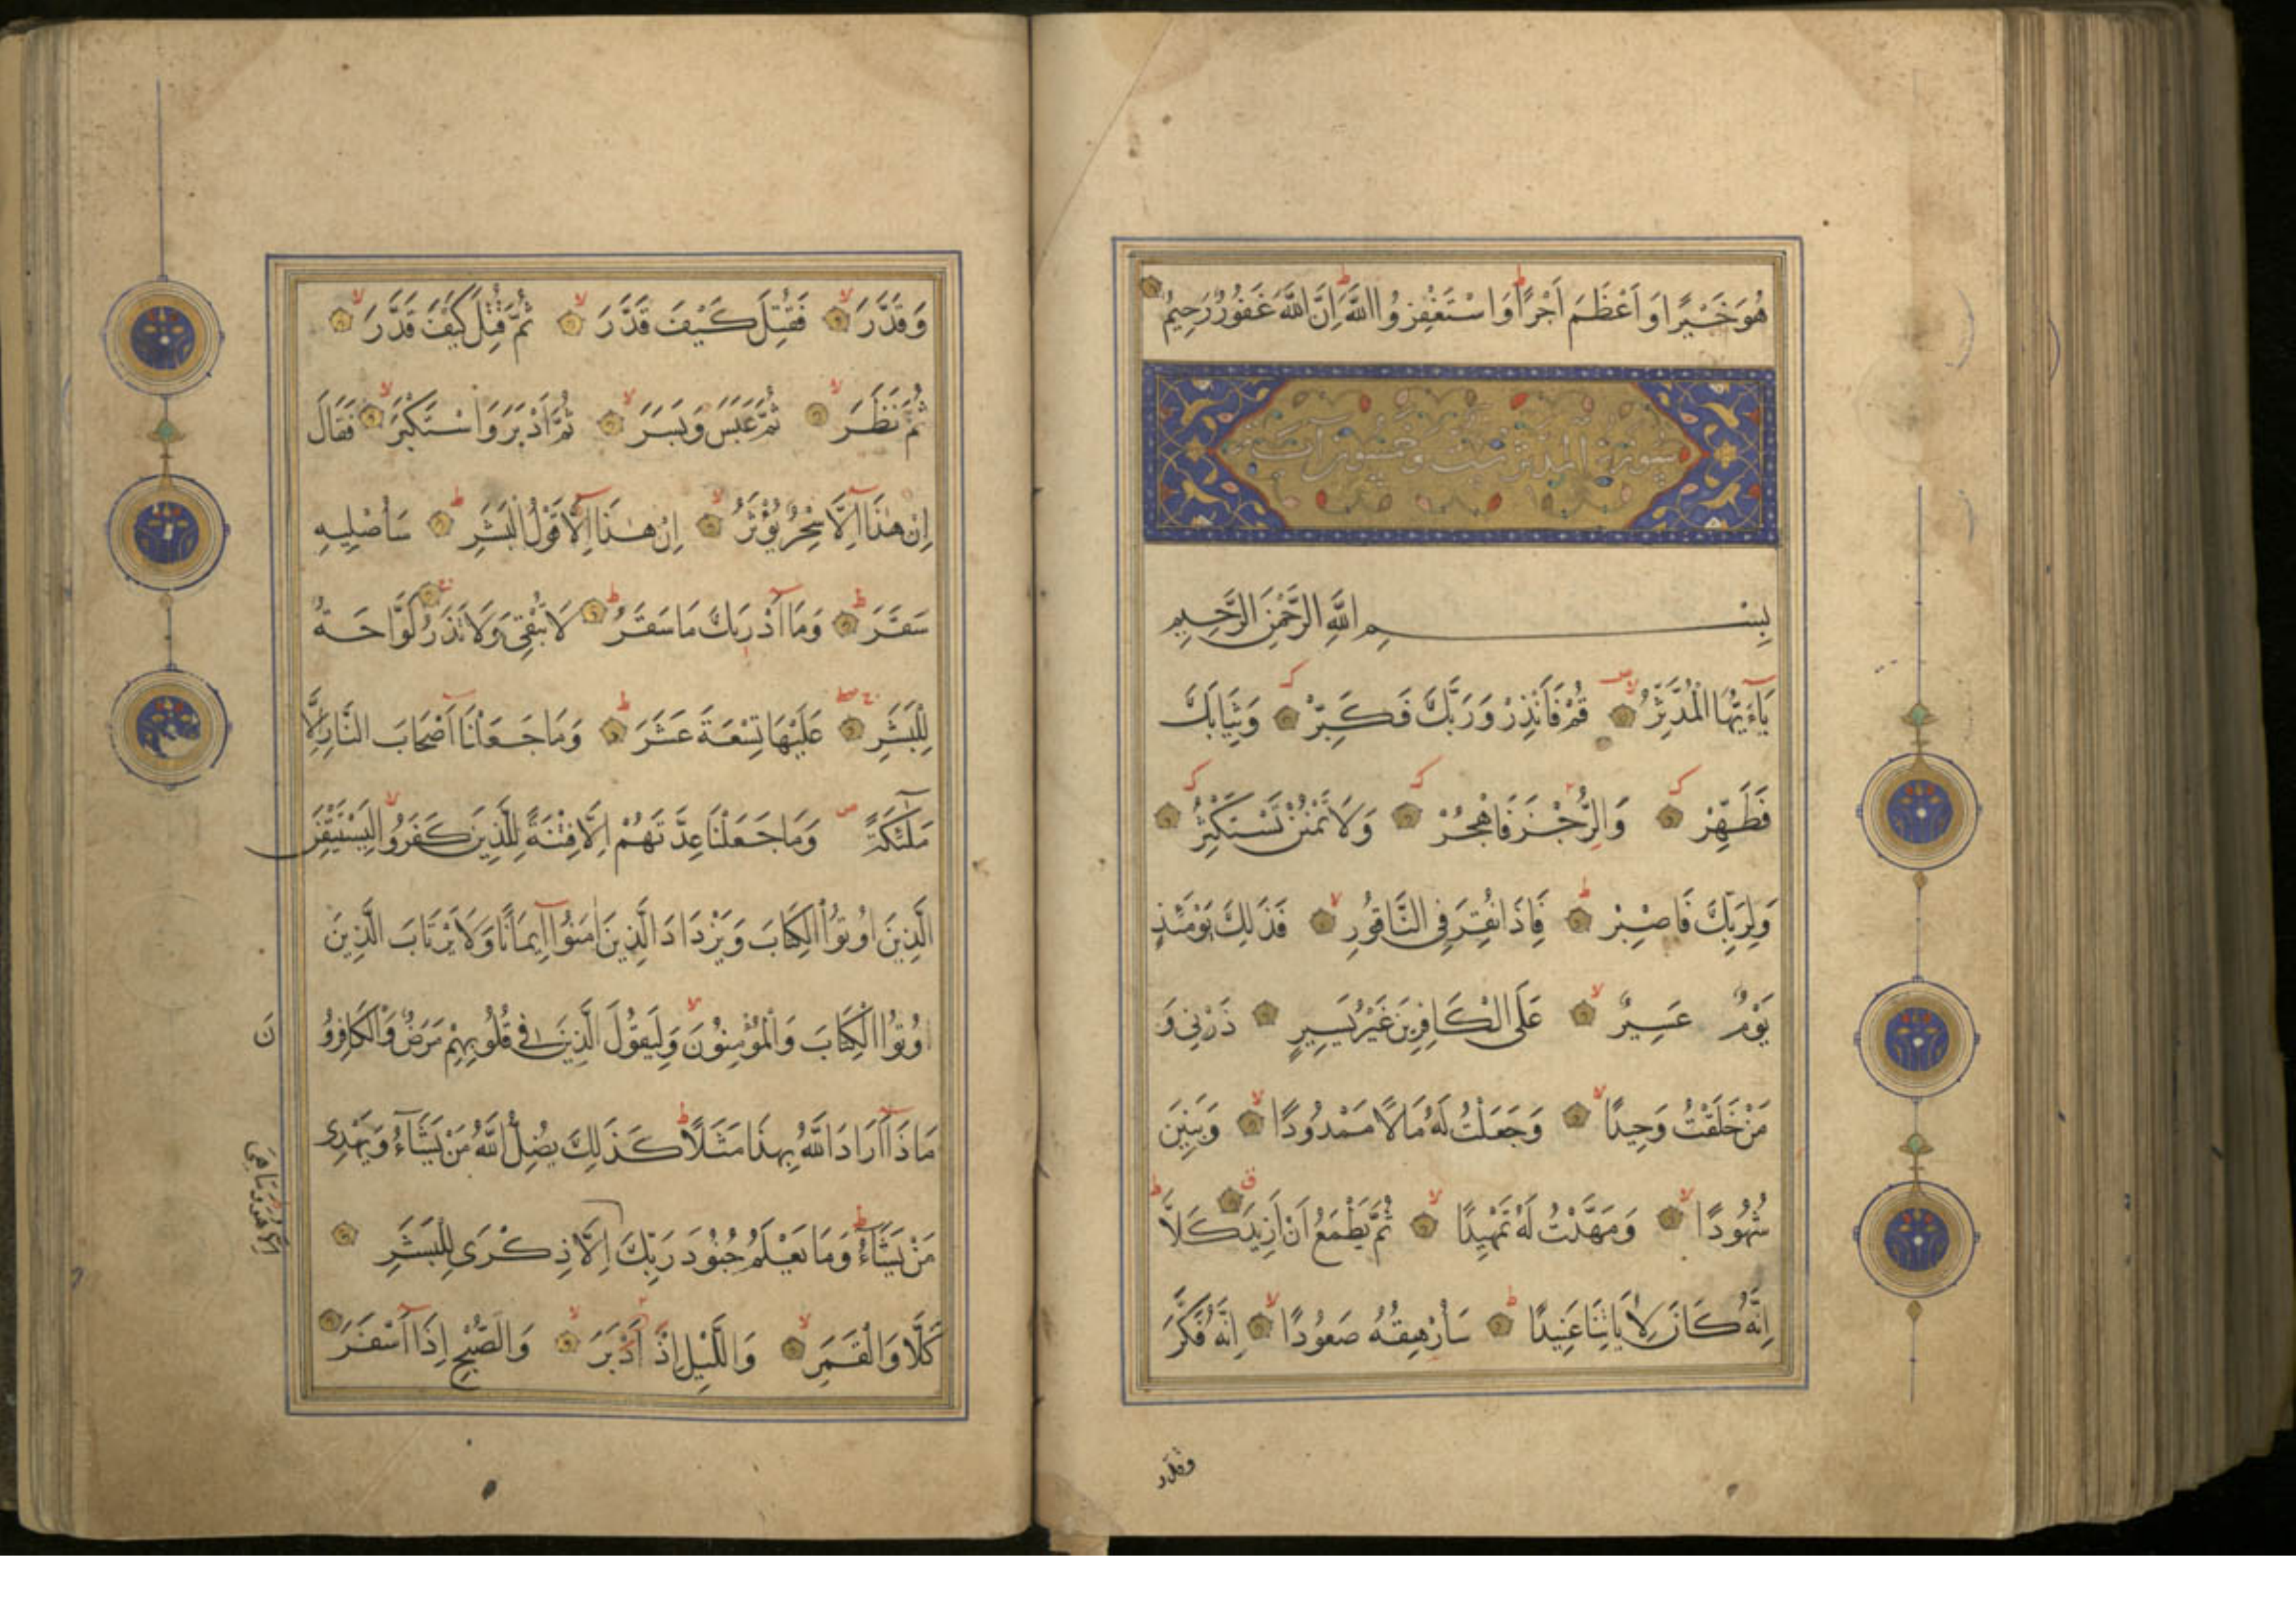 هُوَ خَيْرًا وَاَعْظَمَ اَجْرًا وَاسْتَغْفِرُوا اللّٰهَ اِنَّ اللّٰهَ غَفُورٌ رَحِيمٌ
سورة المدثر ست وخمسون آيات
بِسْمِ اللّٰهِ الرَّحْمٰنِ الرَّحِيمِ
يَآءَيُّهَا الْمُدَّثِّرُ قُمْ فَاَنْذِرْ وَرَبَّكَ فَكَبِّرْ وَثِيَابَكَ
فَطَهِّرْ وَالرُّجْزَ فَاهْجُرْ وَلَا تَمْنُنْ تَسْتَكْثِرُ
وَلِرَبِّكَ فَاصْبِرْ فَاِذَا نُقِرَ فِى النَّاقُورِ فَذٰلِكَ يَوْمَئِذٍ
يَوْمٌ عَسِيرٌ عَلَى الْكَافِرِينَ غَيْرُ يَسِيرٍ ذَرْنِى وَ
مَنْ خَلَقْتُ وَحِيدًا وَجَعَلْتُ لَهُ مَالًا مَمْدُودًا وَبَنِينَ
شُهُودًا وَمَهَّدْتُ لَهُ تَمْهِيدًا ثُمَّ يَطْمَعُ اَنْ اَزِيدَ كَلَّا
اِنَّهُ كَانَ لِاٰيَاتِنَا عَنِيدًا سَاُرْهِقُهُ صَعُودًا اِنَّهُ فَكَّرَ
وقدر
وَقَدَّرَ فَقُتِلَ كَيْفَ قَدَّرَ ثُمَّ قُتِلَ كَيْفَ قَدَّرَ
ثُمَّ نَظَرَ ثُمَّ عَبَسَ وَبَسَرَ ثُمَّ اَدْبَرَ وَاسْتَكْبَرَ فَقَالَ
اِنْ هٰذَا اِلَّا سِحْرٌ يُؤْثَرُ اِنْ هٰذَا اِلَّا قَوْلُ الْبَشَرِ سَاُصْلِيهِ
سَقَرَ وَمَا اَدْرٰىكَ مَا سَقَرُ لَا تُبْقِى وَلَا تَذَرُ لَوَّاحَةٌ
لِلْبَشَرِ عَلَيْهَا تِسْعَةَ عَشَرَ وَمَا جَعَلْنَا اَصْحَابَ النَّارِ اِلَّا
مَلٰئِكَةً وَمَا جَعَلْنَا عِدَّتَهُمْ اِلَّا فِتْنَةً لِلَّذِينَ كَفَرُوا لِيَسْتَيْقِنَ
الَّذِينَ اُوتُوا الْكِتَابَ وَيَزْدَادَ الَّذِينَ اٰمَنُوا اِيمَانًا وَلَا يَرْتَابَ الَّذِينَ
اُوتُوا الْكِتَابَ وَالْمُؤْمِنُونَ وَلِيَقُولَ الَّذِينَ فِى قُلُوبِهِمْ مَرَضٌ وَالْكَافِرُو
نَ
مَاذَا اَرَادَ اللّٰهُ بِهٰذَا مَثَلًا كَذٰلِكَ يُضِلُّ اللّٰهُ مَنْ يَشَآءُ وَيَهْدِى
مَنْ يَشَآءُ وَمَا يَعْلَمُ جُنُودَ رَبِّكَ اِلَّا ذِكْرٰى لِلْبَشَرِ
اِلَّا هُوَ وَمَا هِىَ
كَلَّا وَالْقَمَرِ وَاللَّيْلِ اِذْ اَدْبَرَ وَالصُّبْحِ اِذَا اَسْفَرَ